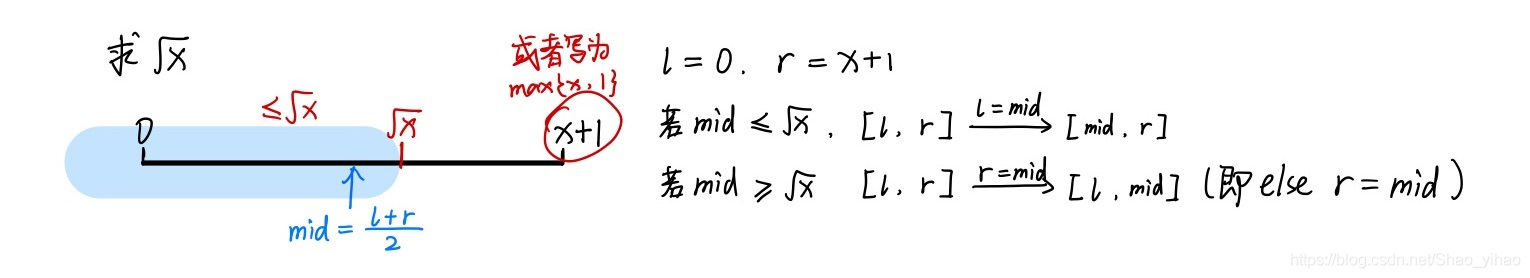 求 √x
或者写为
max{x, 1}
≤√x
√x
0
x+1
mid = (l+r)/2
l = 0. r = x+1
若 mid ≤ √x, [l, r] —l=mid→ [mid, r]
若 mid ≥ √x [l, r] —r=mid→ [l, mid] (即 else r = mid)
https://blog.csdn.net/Shao_yihao